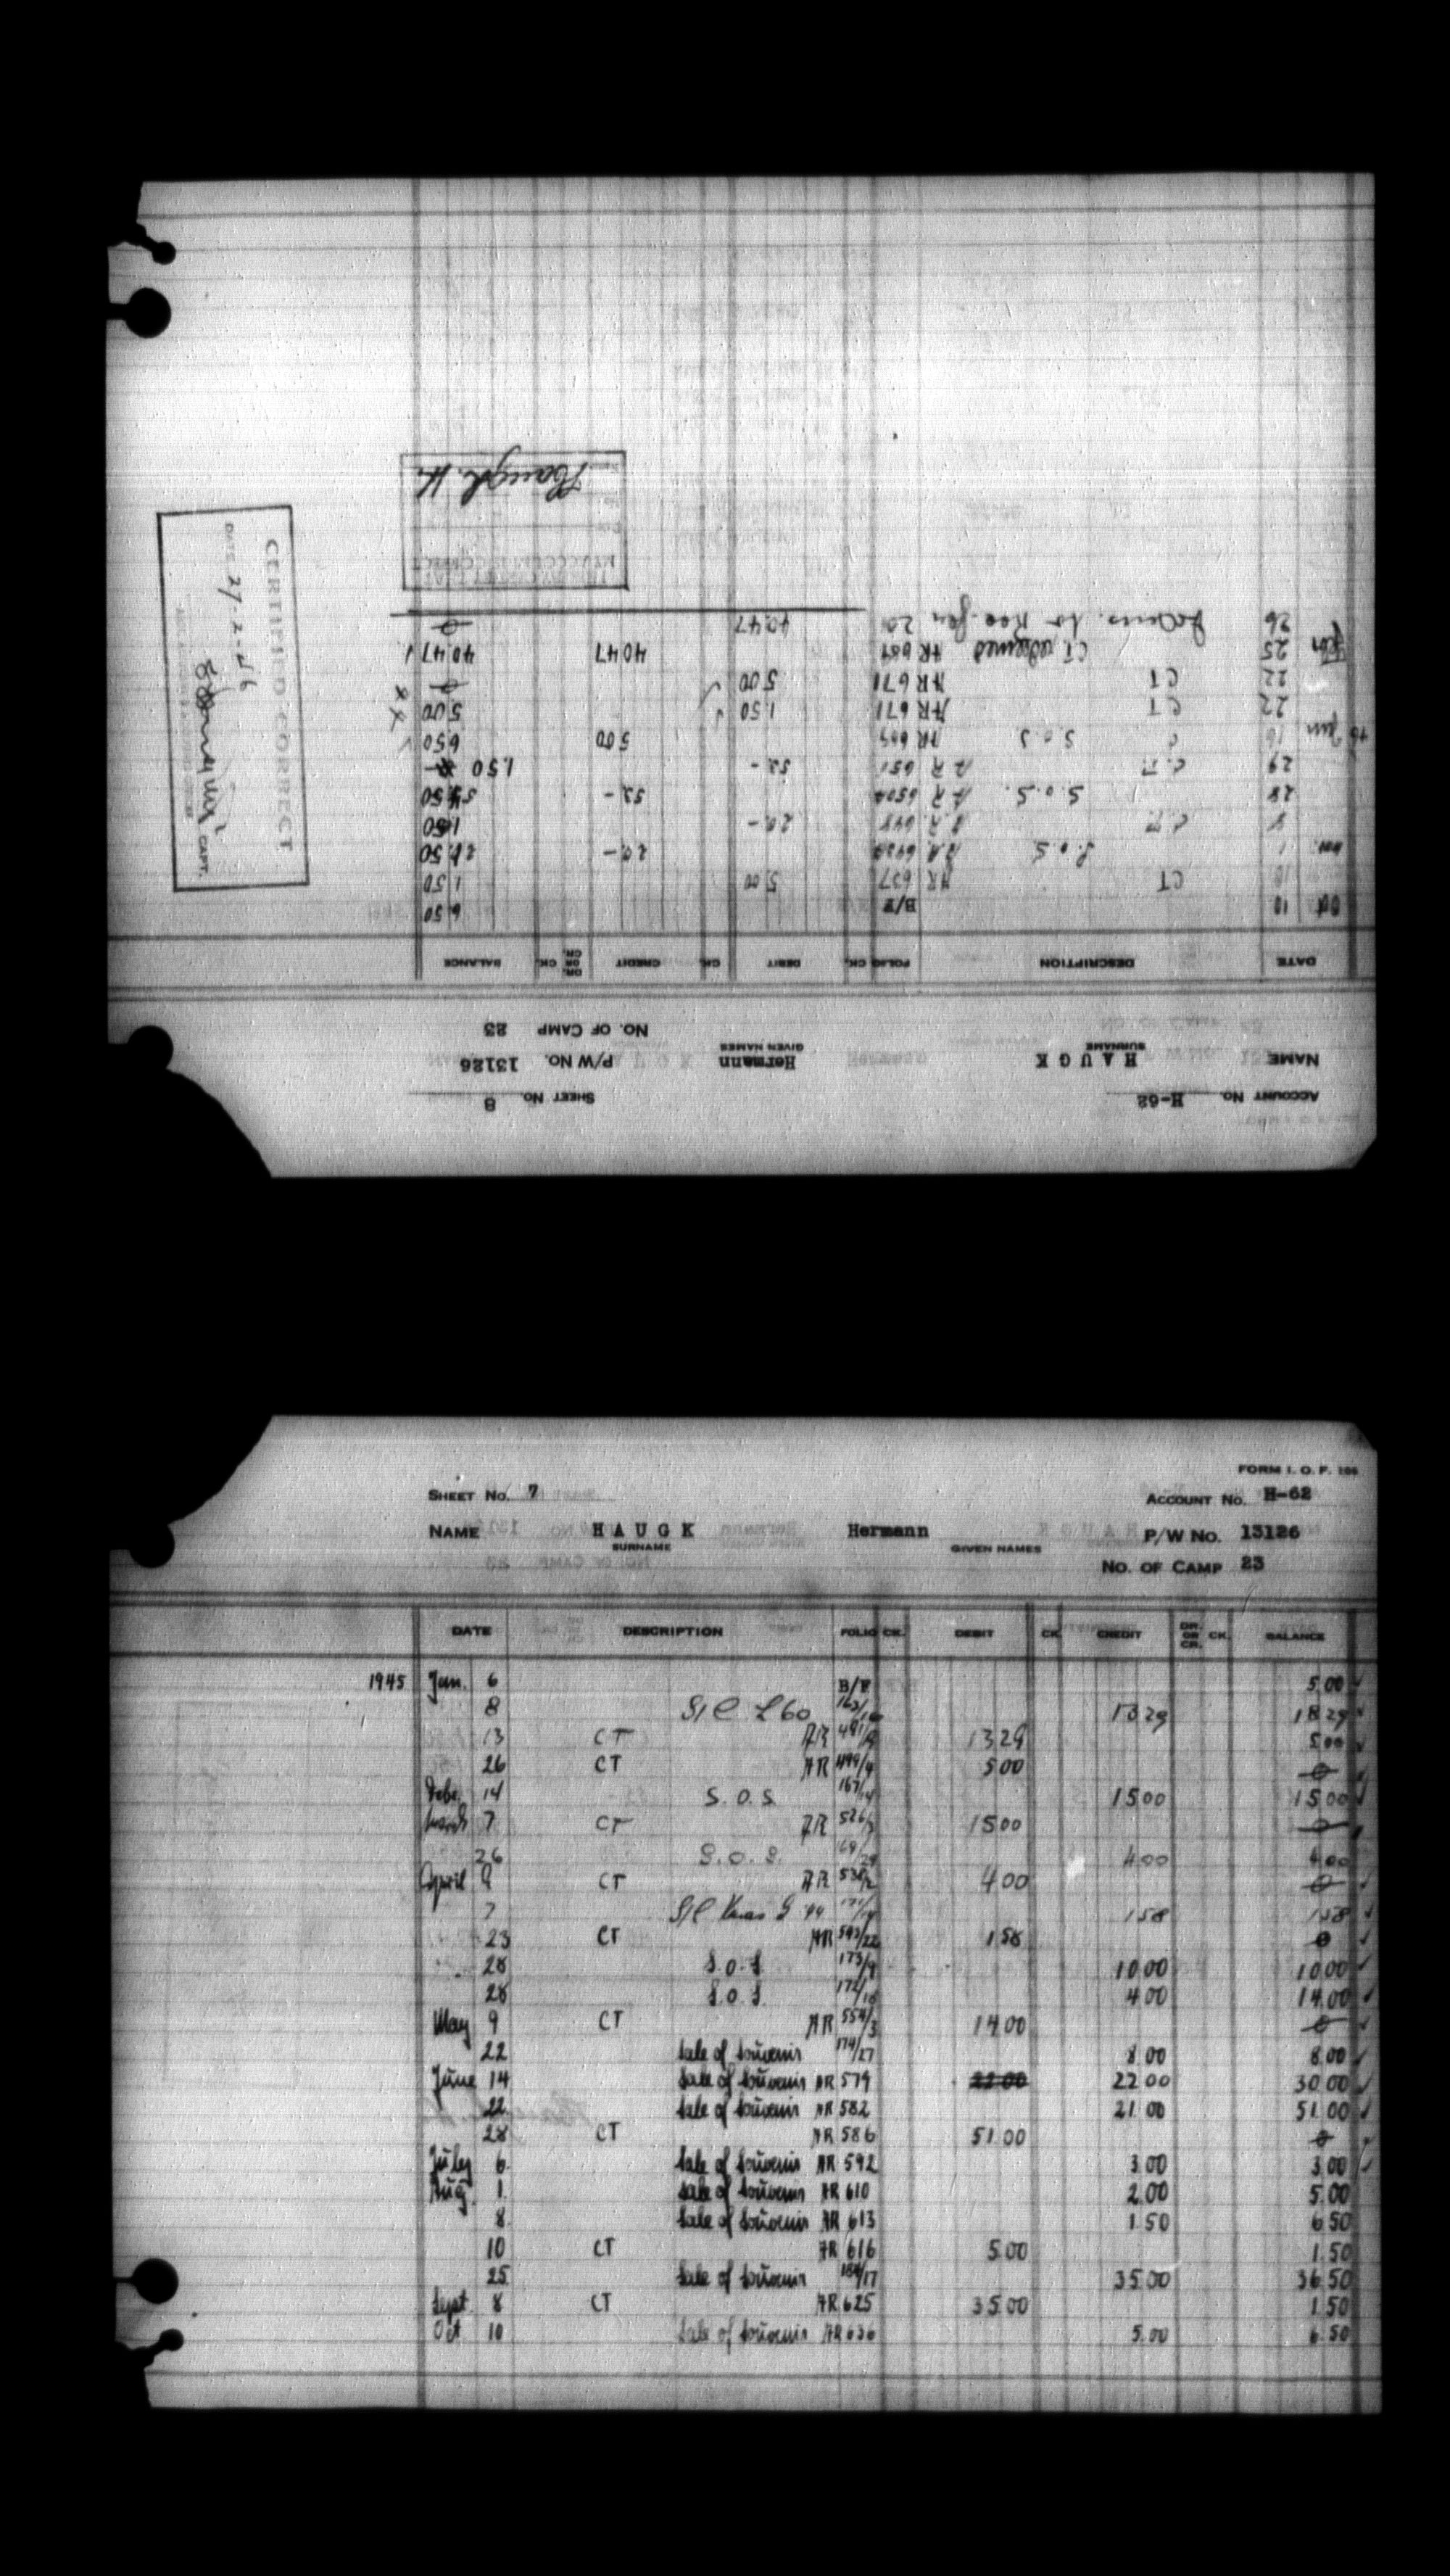 ACCOUNT No. H-62 SHEET No. 8
NAME HAUGK Hermann P/W No. 13126
SURNAME GIVEN NAMES
NO. OF CAMP 23
DATE DESCRIPTION FOLIO CK. DEBIT CK. CREDIT DR. OR CR. CK. BALANCE
Oct 10 B/F 6 50
10 CT AR 637 5 00 1 50
Nov. 1 S.O.S. AR 20- 21 50
8 C.T. A.R. 648 20- 1 50
28 S.O.S. A R 53-
29 C.T. A R 651 53- 1.50
Jan 16 S.O.S AR 5 00 6 50
22 CT AR 671 1 50 5 00
22 CT AR 671 5 00 0
25 CT redeemed AR 40 47 40 47
26 Jan 20 40.47 0
Haugk. H.
CERTIFIED CORRECT
DATE 27-2-46
CAPT.
FORM I. O. F. 106
SHEET No. 7 ACCOUNT No. H-62
NAME HAUGK Hermann P/W No. 13126
SURNAME GIVEN NAMES
NO. OF CAMP 23
DATE DESCRIPTION FOLIO CK. DEBIT CK. CREDIT DR. OR CR. CK. BALANCE
1945 Jan. 6 B/F 5.00
8 L 60 13 29 18 29
13 CT AR 13 29 5 00
26 CT AR 499/4 5 00 0
Febr. 14 S.O.S. 167/14 15 00 15 00
March 7 CT AR 526/3 15 00 0
26 S.O.S. 4 00 4 00
April 9 CT AR 4 00 0
7 Xmas G 44 1 58 1 58
23 CT AR 543/22 1 58 0
28 S.O.S 173/9 10 00 10 00
28 S.O.S 4 00 14.00
May 9 CT AR 554/3 14 00 0
22 Sale of souvenir 174/27 8 00 8 00
June 14 Sale of souvenir AR 579 22 00 22 00 30 00
22 Sale of souvenir AR 582 21 00 51 00
28 CT AR 586 51 00 0
July 6 Sale of souvenir AR 592 3 00 3 00
Aug 1 Sale of souvenir AR 610 2.00 5.00
8 Sale of souvenir AR 613 1 50 6 50
10 CT AR 616 5 00 1.50
25 Sale of souvenir 35 00 36 50
Sept. 8 CT AR 625 35 00 1 50
Oct. 10 Sale of souvenir AR 636 5.00 6 50